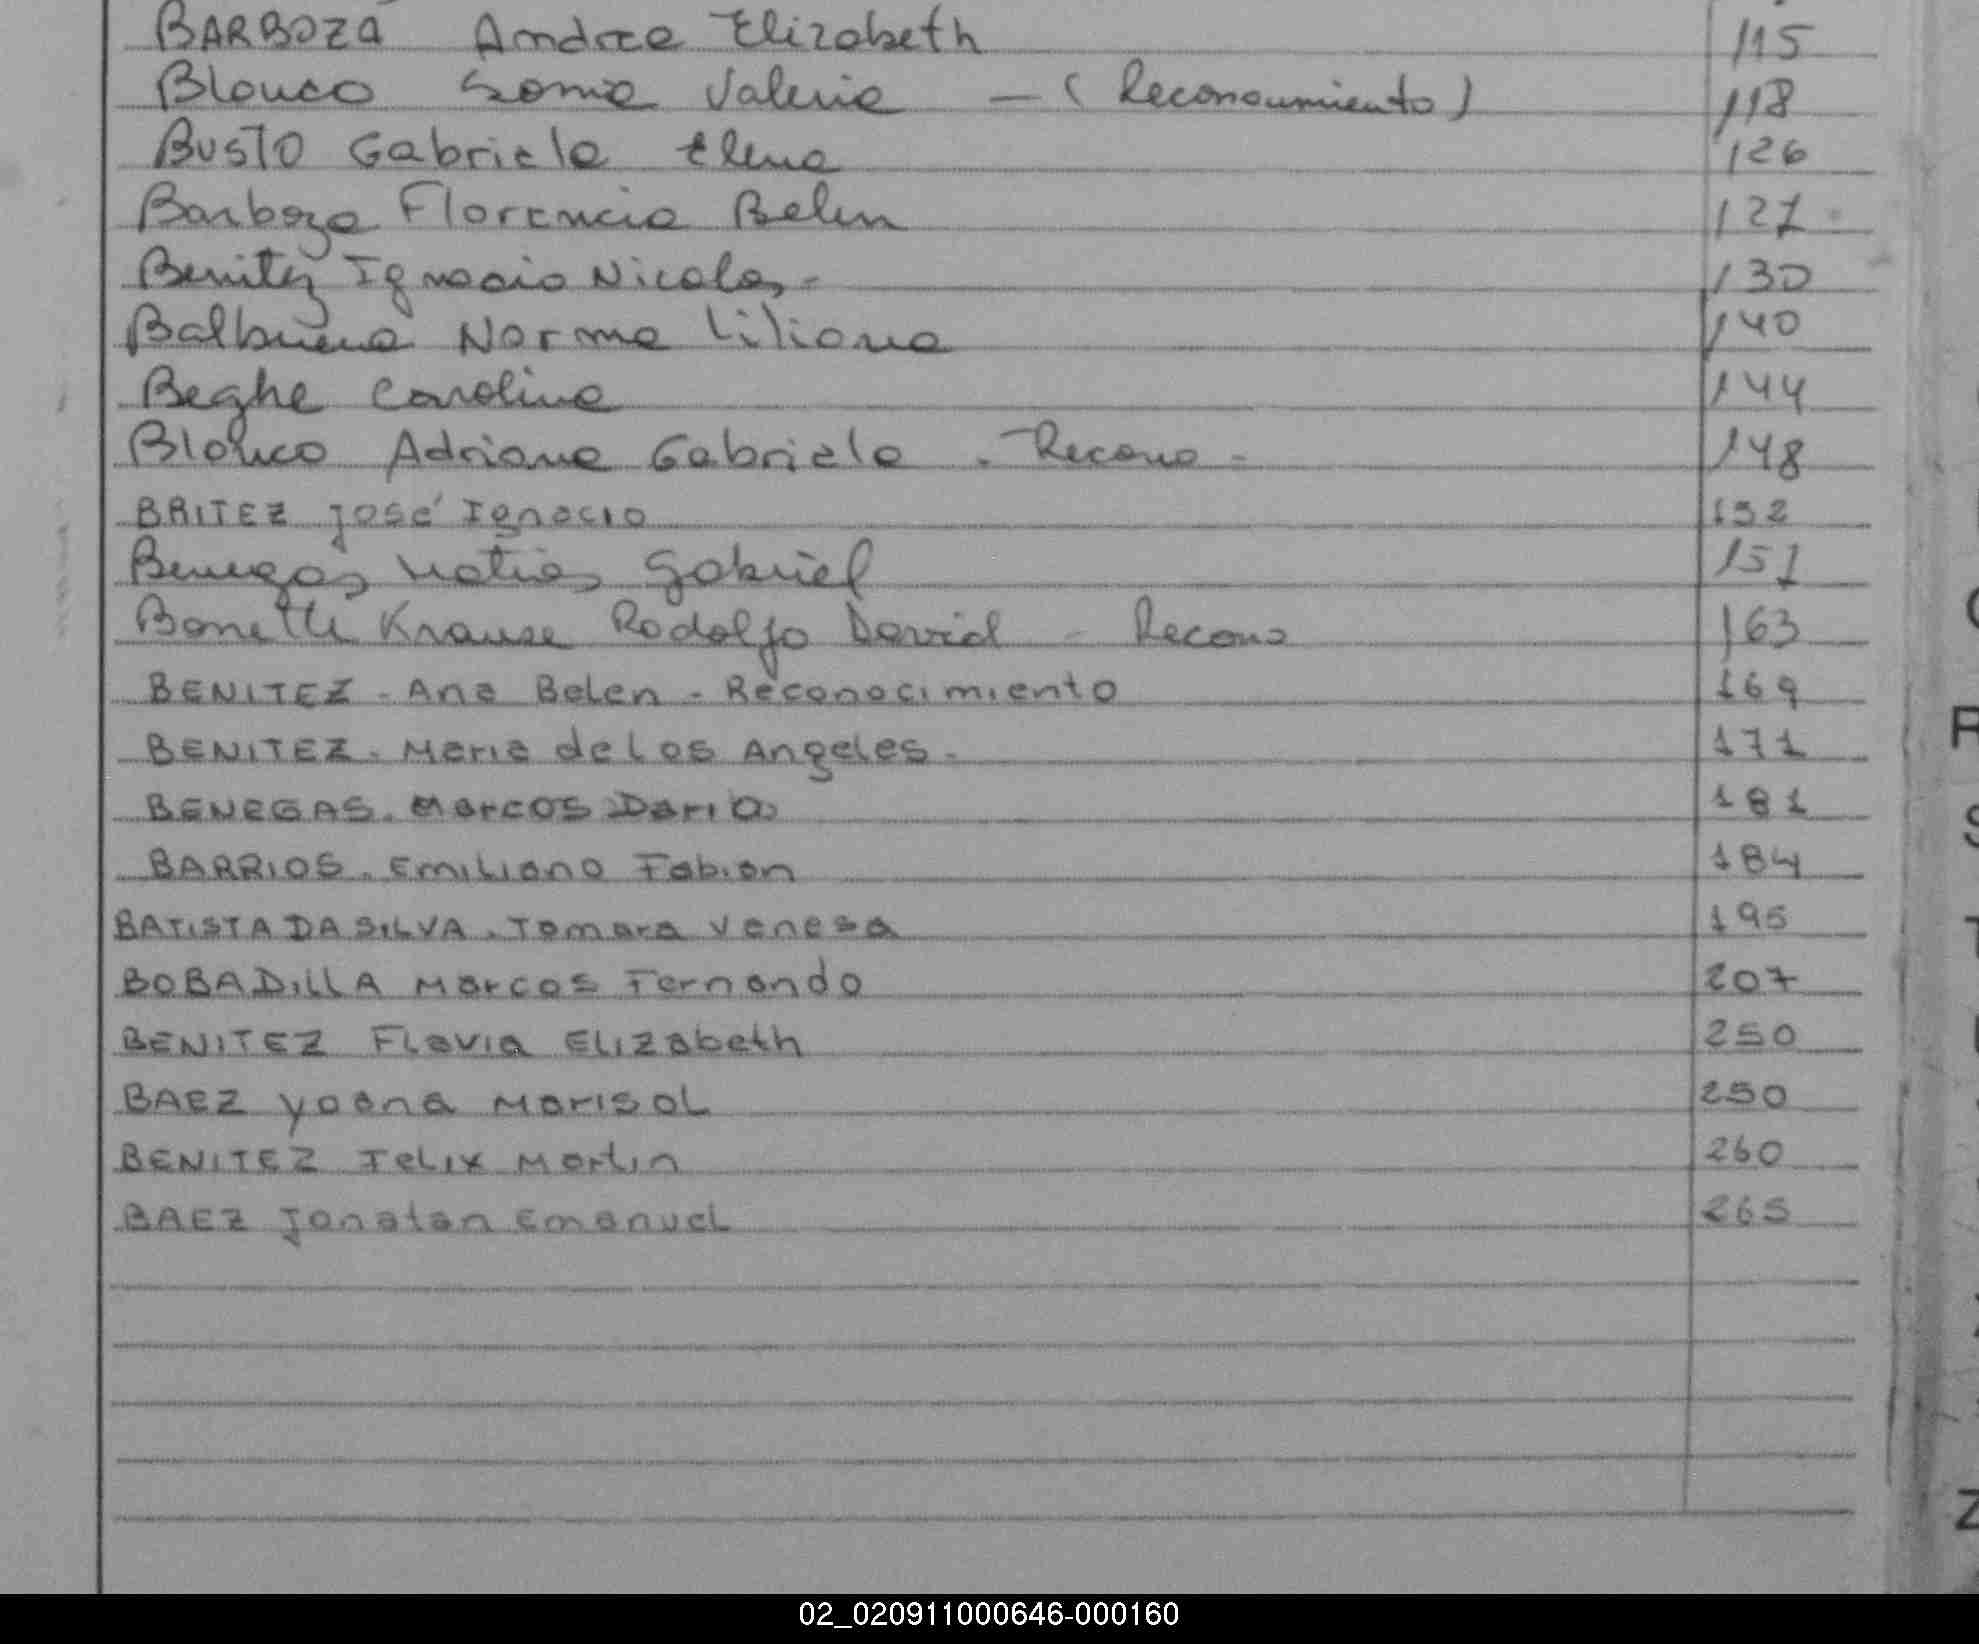 BARBOZA Andrea Elizabeth 115
Blanco Sonia Valeria - (Reconocimiento) 118
BUSTO Gabriela Elena 126
Barboza Florencia Belen 127
Benitez Ignacio Nicolas - 130
Balbuena Norma Liliana 140
Beghe Carolina 144
Blanco Adriana Gabriela - Recono - 148
BRITEZ José Ignacio 152
Benegas Matias Gabriel 157
Bonetti Krause Rodolfo David - Recono 163
BENITEZ - Ana Belen - Reconocimiento 169
BENITEZ - Maria de Los Angeles - 171
BENEGAS. Marcos Dario 181
BARRIOS. Emiliano Fabian 184
BATISTA DA SILVA. Tamara Vanesa 195
BOBADILLA Marcos Fernando 207
BENITEZ Flavia Elizabeth 250
BAEZ Yoana Marisol 250
BENITEZ Felix Martin 260
BAEZ Jonatan Emanuel 265
R
S
T
Z
02_020911000646-000160